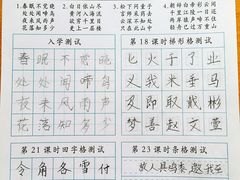 1. 春眠不觉晓
处处闻啼鸟
夜来风雨声
花落知多少
2. 白日依山尽
黄河入海流
欲穷千里目
更上一层楼
3. 松下问童子
言师采药去
只在此山中
云深不知处
4. 朝辞白帝彩云间
千里江陵一日还
两岸猿声啼不住
轻舟已过万重山
入学测试
春眠不觉晓
处处闻啼鸟
夜来风雨声
花落知多少
第18课时梯形格测试
七火于了业
义我米垂马
友即取戴彬
叉即敢文楚
第21课时田字格测试
令角各雪付
第23课时条格测试
故人具鸡黍,邀我至